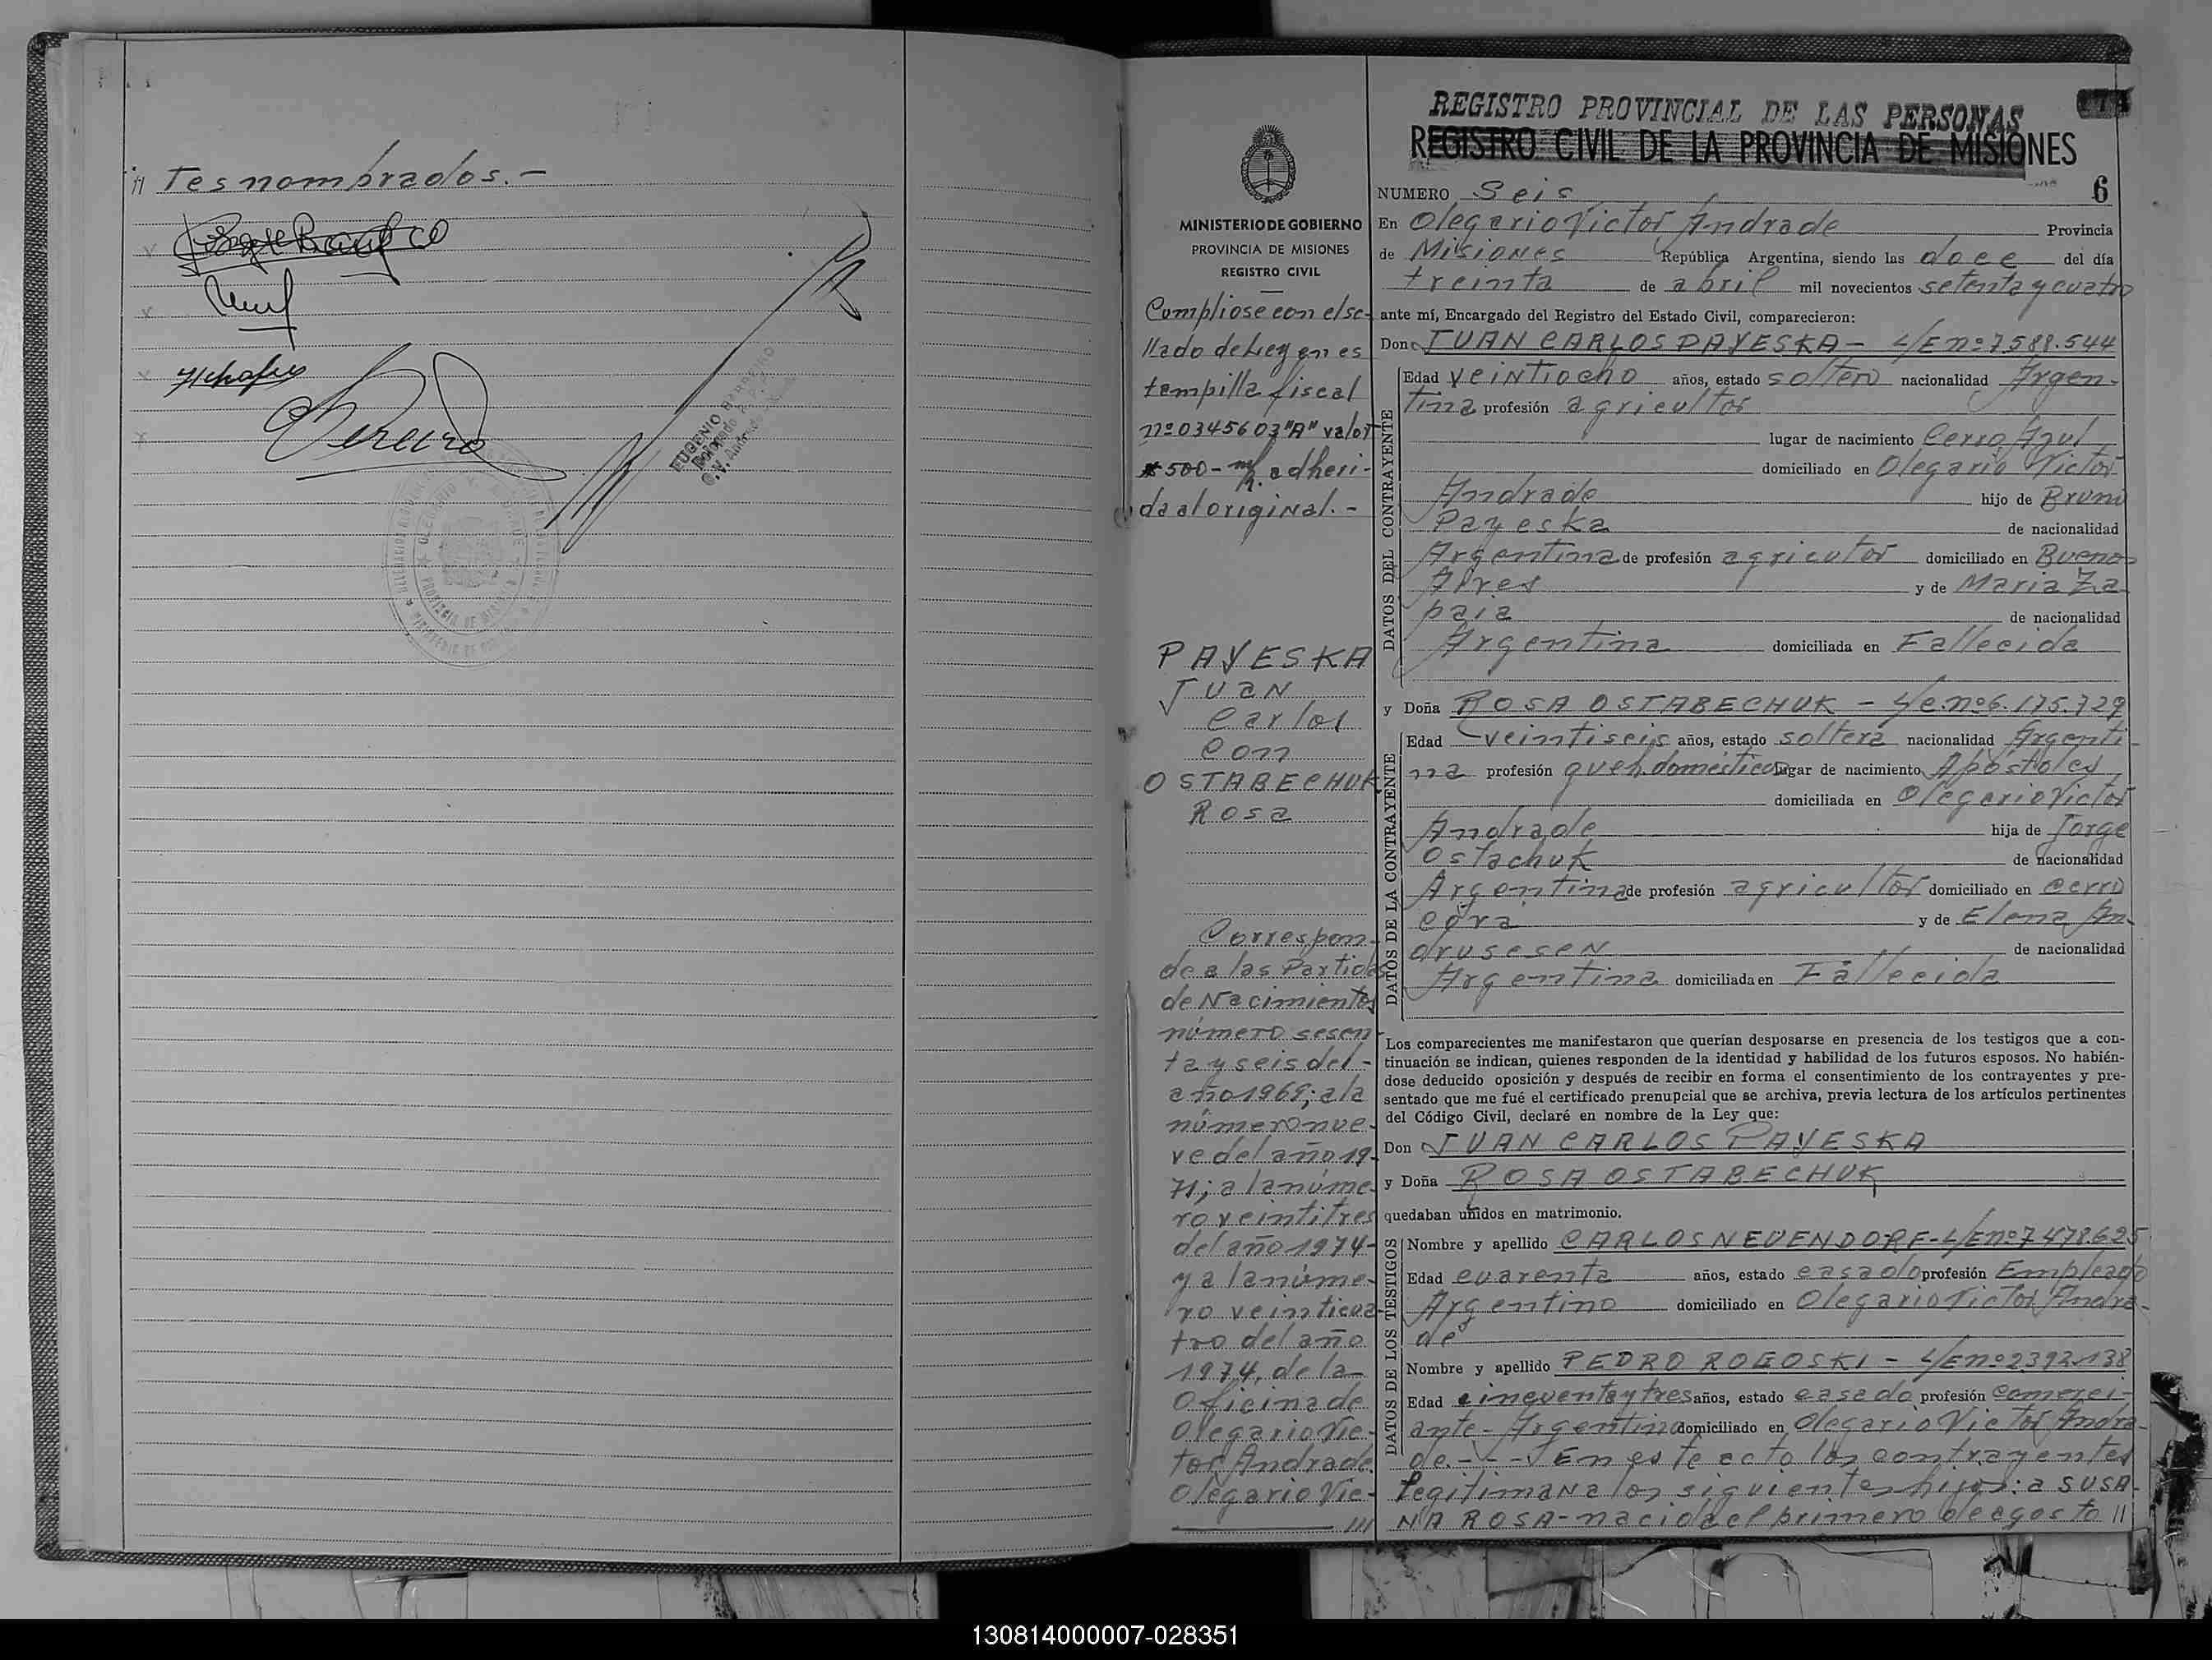 // tes nombrados.-
EUGENIO BARREIRO
O.V. Andrade
REGISTRO PROVINCIAL DE LAS PERSONAS
REGISTRO CIVIL DE LA PROVINCIA DE MISIONES
6
MINISTERIO DE GOBIERNO
PROVINCIA DE MISIONES
REGISTRO CIVIL
Cumpliose con el se-
llado de Ley en es
tampilla fiscal
nº 0345603 "A" valor
$ 500- m/n. adheri-
da al original.-
PAYESKA
Juan
Carlos
con
OSTABECHUK
Rosa
Correspon-
de a las Partidas
de Nacimientos
número sesen
ta y seis del-
año 1969; a la
número nue-
ve del año 19-
71; a la núme-
ro veintitres
del año 1974-
y a la núme-
ro veinticua-
tro del año
1974, de la-
Oficina de
Olegario Vic-
tor Andrade.
Olegario Vic-
///
NUMERO Seis
En Olegario Victor Andrade Provincia
de Misiones República Argentina, siendo las doce del día
treinta de abril mil novecientos setenta y cuatro
ante mí, Encargado del Registro del Estado Civil, comparecieron:
Don JUAN CARLOS PAYESKA- L/E nº 7588.544
DATOS DEL CONTRAYENTE
Edad veintiocho años, estado soltero nacionalidad Argen-
tina profesión agricultor
lugar de nacimiento Cerro Azul
domiciliado en Olegario Victor
Andrade hijo de Bruno
Payeska de nacionalidad
Argentina de profesión agricutor domiciliado en Bueno
Aires y de Maria Za
paia de nacionalidad
Argentina domiciliada en Fallecida
y Doña ROSA OSTABECHUK - L/e. nº 6.175.729
DATOS DE LA CONTRAYENTE
Edad veintiseis años, estado soltera nacionalidad Argenti-
na profesión queh. domésticos lugar de nacimiento Apóstoles
domiciliada en Olegario Victor
Andrade hija de Jorge
Ostachuk de nacionalidad
Argentina de profesión agricultor domiciliado en Cerro
Corá y de Elena An-
drusesen de nacionalidad
Argentina domiciliada en Fallecida
Los comparecientes me manifestaron que querían desposarse en presencia de los testigos que a con-
tinuación se indican, quienes responden de la identidad y habilidad de los futuros esposos. No habién-
dose deducido oposición y después de recibir en forma el consentimiento de los contrayentes y pre-
sentado que me fué el certificado prenupcial que se archiva, previa lectura de los artículos pertinentes
del Código Civil, declaré en nombre de la Ley que:
Don JUAN CARLOS PAYESKA
y Doña ROSA OSTABECHUK
quedaban unidos en matrimonio.
DATOS DE LOS TESTIGOS
Nombre y apellido CARLOS NEUENDORF- L/E nº 7478625
Edad cuarenta años, estado casado profesión Empleado
Argentino domiciliado en Olegario Victor Andra-
de
Nombre y apellido PEDRO ROGOSKI - L/E nº 2392138
Edad cincuenta y tres años, estado casado profesión comerci-
ante- Argentino domiciliado en Olegario Victor Andra-
de.- - - En este acto los contrayentes
legitiman a los siguientes hijos: a SUSA-
NA ROSA- nacida el primero de agosto //
130814000007-028351